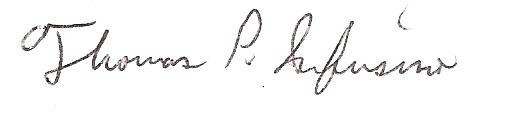 Thomas P. Infusino